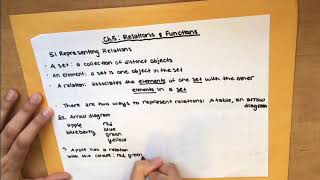 Ch.5: Relations & Functions
5.1 Representing Relations
• A set: a collection of distinct objects
• An element: a set is one object in the set
• A relation: associates the elements of one set with the other
elments in a set
• There are two ways to represent relations: A table, an arrow
diagram
Ex Arrow diagram
apple red
blueberry blue
green
yellow
→ Apple has a relation
with the colours: red, green